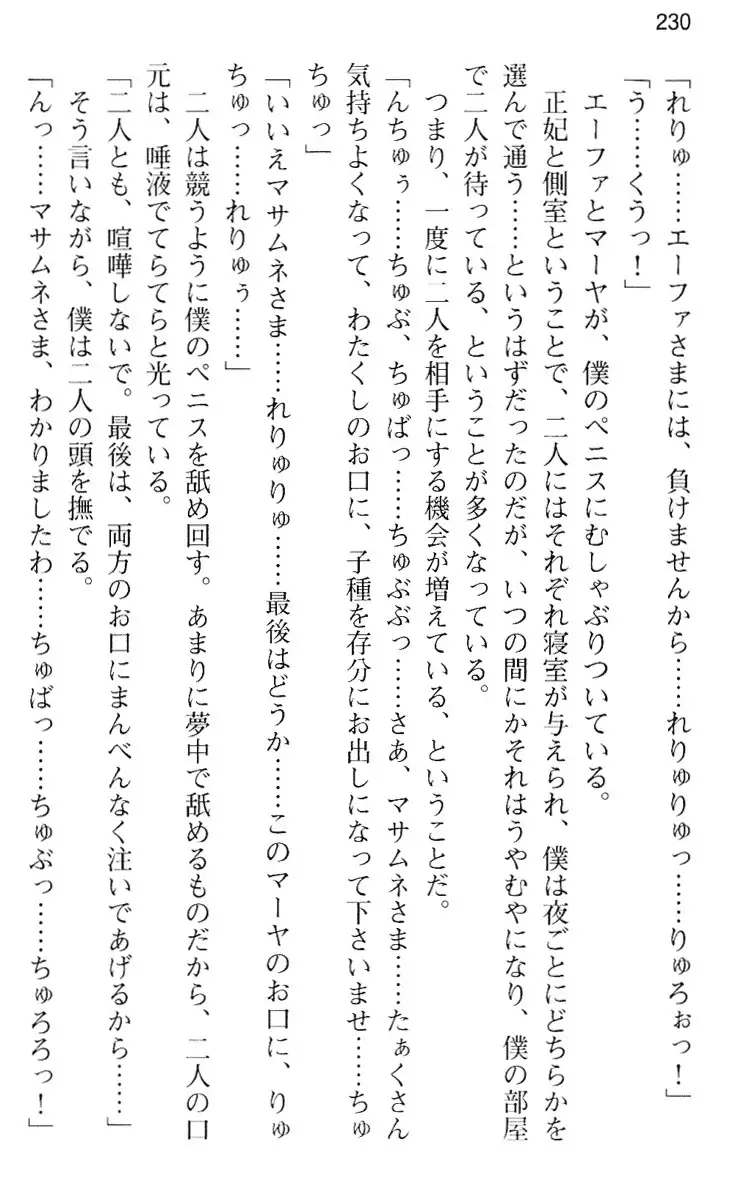 230
「れりゅ……エーファさまには、負けませんから……れりゅりゅっ……りゅろぉっ！」
「う……くうっ！」
エーファとマーヤが、僕のペニスにむしゃぶりついている。
正妃と側室ということで、二人にはそれぞれ寝室が与えられ、僕は夜ごとにどちらかを
選んで通う……というはずだったのだが、いつの間にかそれはうやむやになり、僕の部屋
で二人が待っている、ということが多くなっている。
つまり、一度に二人を相手にする機会が増えている、ということだ。
「んちゅぅ……ちゅぶ、ちゅばっ……ちゅぶぶっ……さあ、マサムネさま……たぁくさん
気持ちよくなって、わたくしのお口に、子種を存分にお出しになって下さいませ……ちゅ
ちゅっ」
「いいえマサムネさま……れりゅりゅ……最後はどうか……このマーヤのお口に、りゅ
ちゅっ……れりゅぅ……」
二人は競うように僕のペニスを舐め回す。あまりに夢中で舐めるものだから、二人の口
元は、唾液でてらてらと光っている。
「二人とも、喧嘩しないで。最後は、両方のお口にまんべんなく注いであげるから……」
そう言いながら、僕は二人の頭を撫でる。
「んっ……マサムネさま、わかりましたわ……ちゅばっ……ちゅぶっ……ちゅろろっ！」